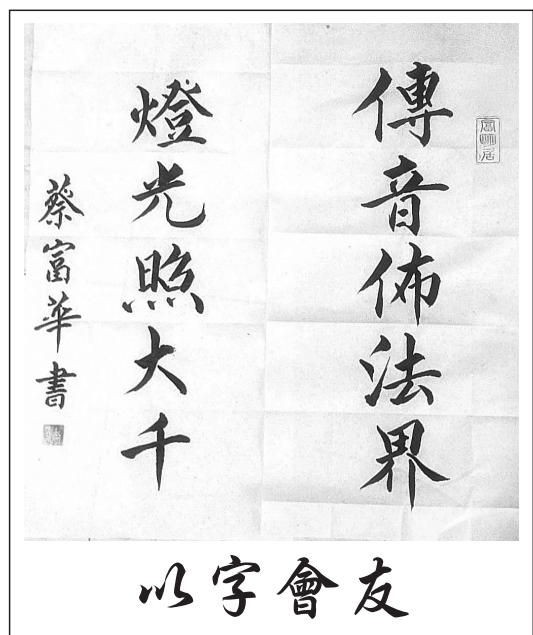 傳音佈法界
燈光照大千
蔡富華書
以字會友